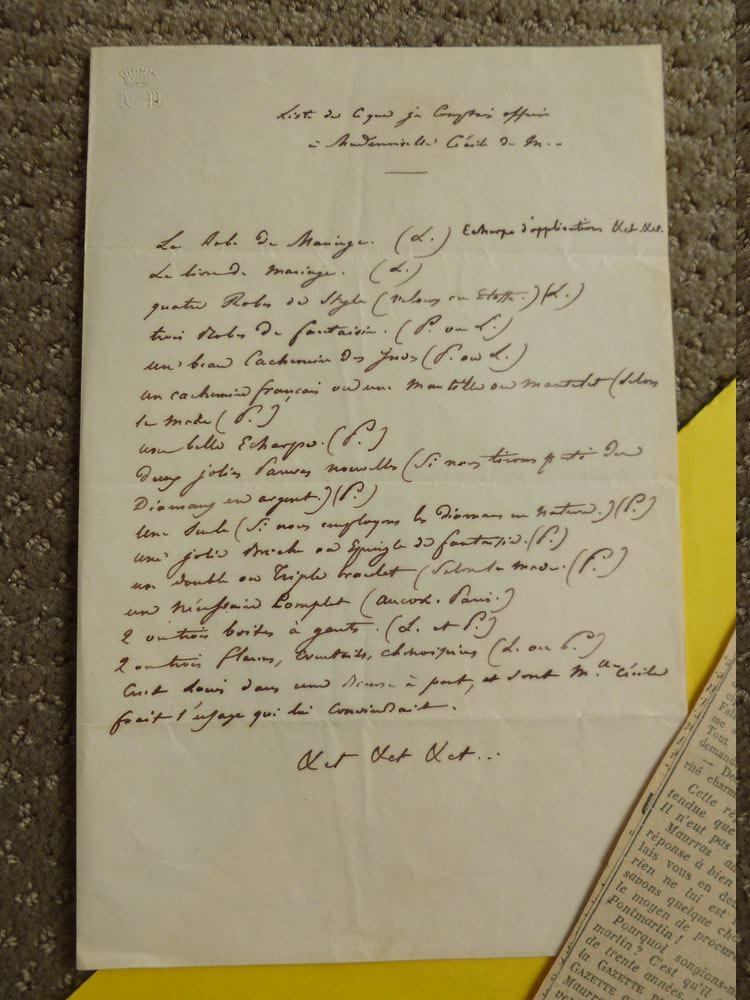 A P
Liste de ce que je Comptais offrir
à Mademoiselle Cécile de M...
La Robe de Mariage. (L.) Echarpe d'application &et. &et.
Le livre de mariage. (L.)
quatre Robes de Style (velours ou Etoffe.) (L.)
trois Robes de fantaisie. (P. ou L.)
un beau Cachemire des Indes (P. ou L.)
un cachemire français ou une Mantille ou mantelet (selon
la mode (P.)
une belle Echarpe. (P.)
deux jolies Parures nouvelles (Si nous tirons parti des
Diamans en argent.) (P.)
Une Seule (Si nous employons les diamans en nature.) (P.)
une jolie Broche ou Epingle de fantaisie. (P.)
un double ou Triple bracelet (Selon la mode. (P.)
un Nécessaire Complet (Aucoc. Paris.)
2 ou trois boites à gants. (L. et P.)
2 ou trois flacons, Eventails, (L. ou P.)
Cent louis dans une Bourse à part, et dont M.elle Cécile
ferait l'usage qui lui Conviendrait.
&et &et &et...
me
Tout
demand
— De
rité charm
Cette ré
tendue que
Il n'eut pas
Maurras
réponse à bien
lais vous en
rien ne lui est
savons quelque
le moyen de procur
Pontmartin !
Pourquoi songions-n
martin ? C'est qu'il
de trente années
la GAZETTE
GAZETTE
Maur